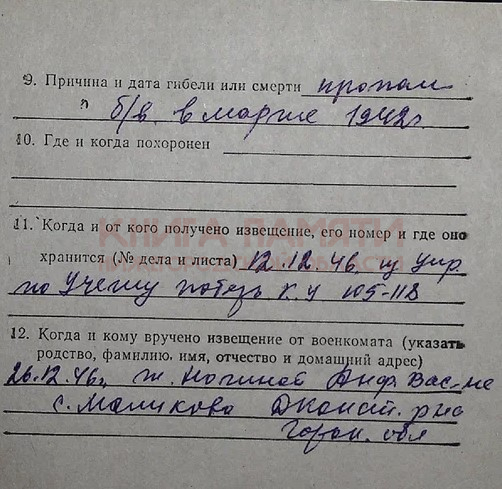 9. Причина и дата гибели или смерти пропал
б/в. в марте 1942г.
10. Где и когда похоронен
КНИГА ПАМЯТИ
11. Когда и от кого получено извещение, его номер и где оно
хранится (№ дела и листа) 12.12.46. из Упр.
НИЖЕГОРОДСКОЙ ОБЛАСТИ
по учету потерь К.У 105-118
12. Когда и кому вручено извещение от военкомата (указать
родство, фамилию, имя, отчество и домашний адрес)
26.12.46г. ж. Ногиной Анф. Вас-не
с. Маликово Д.Конст. р-на
Горьк. обл